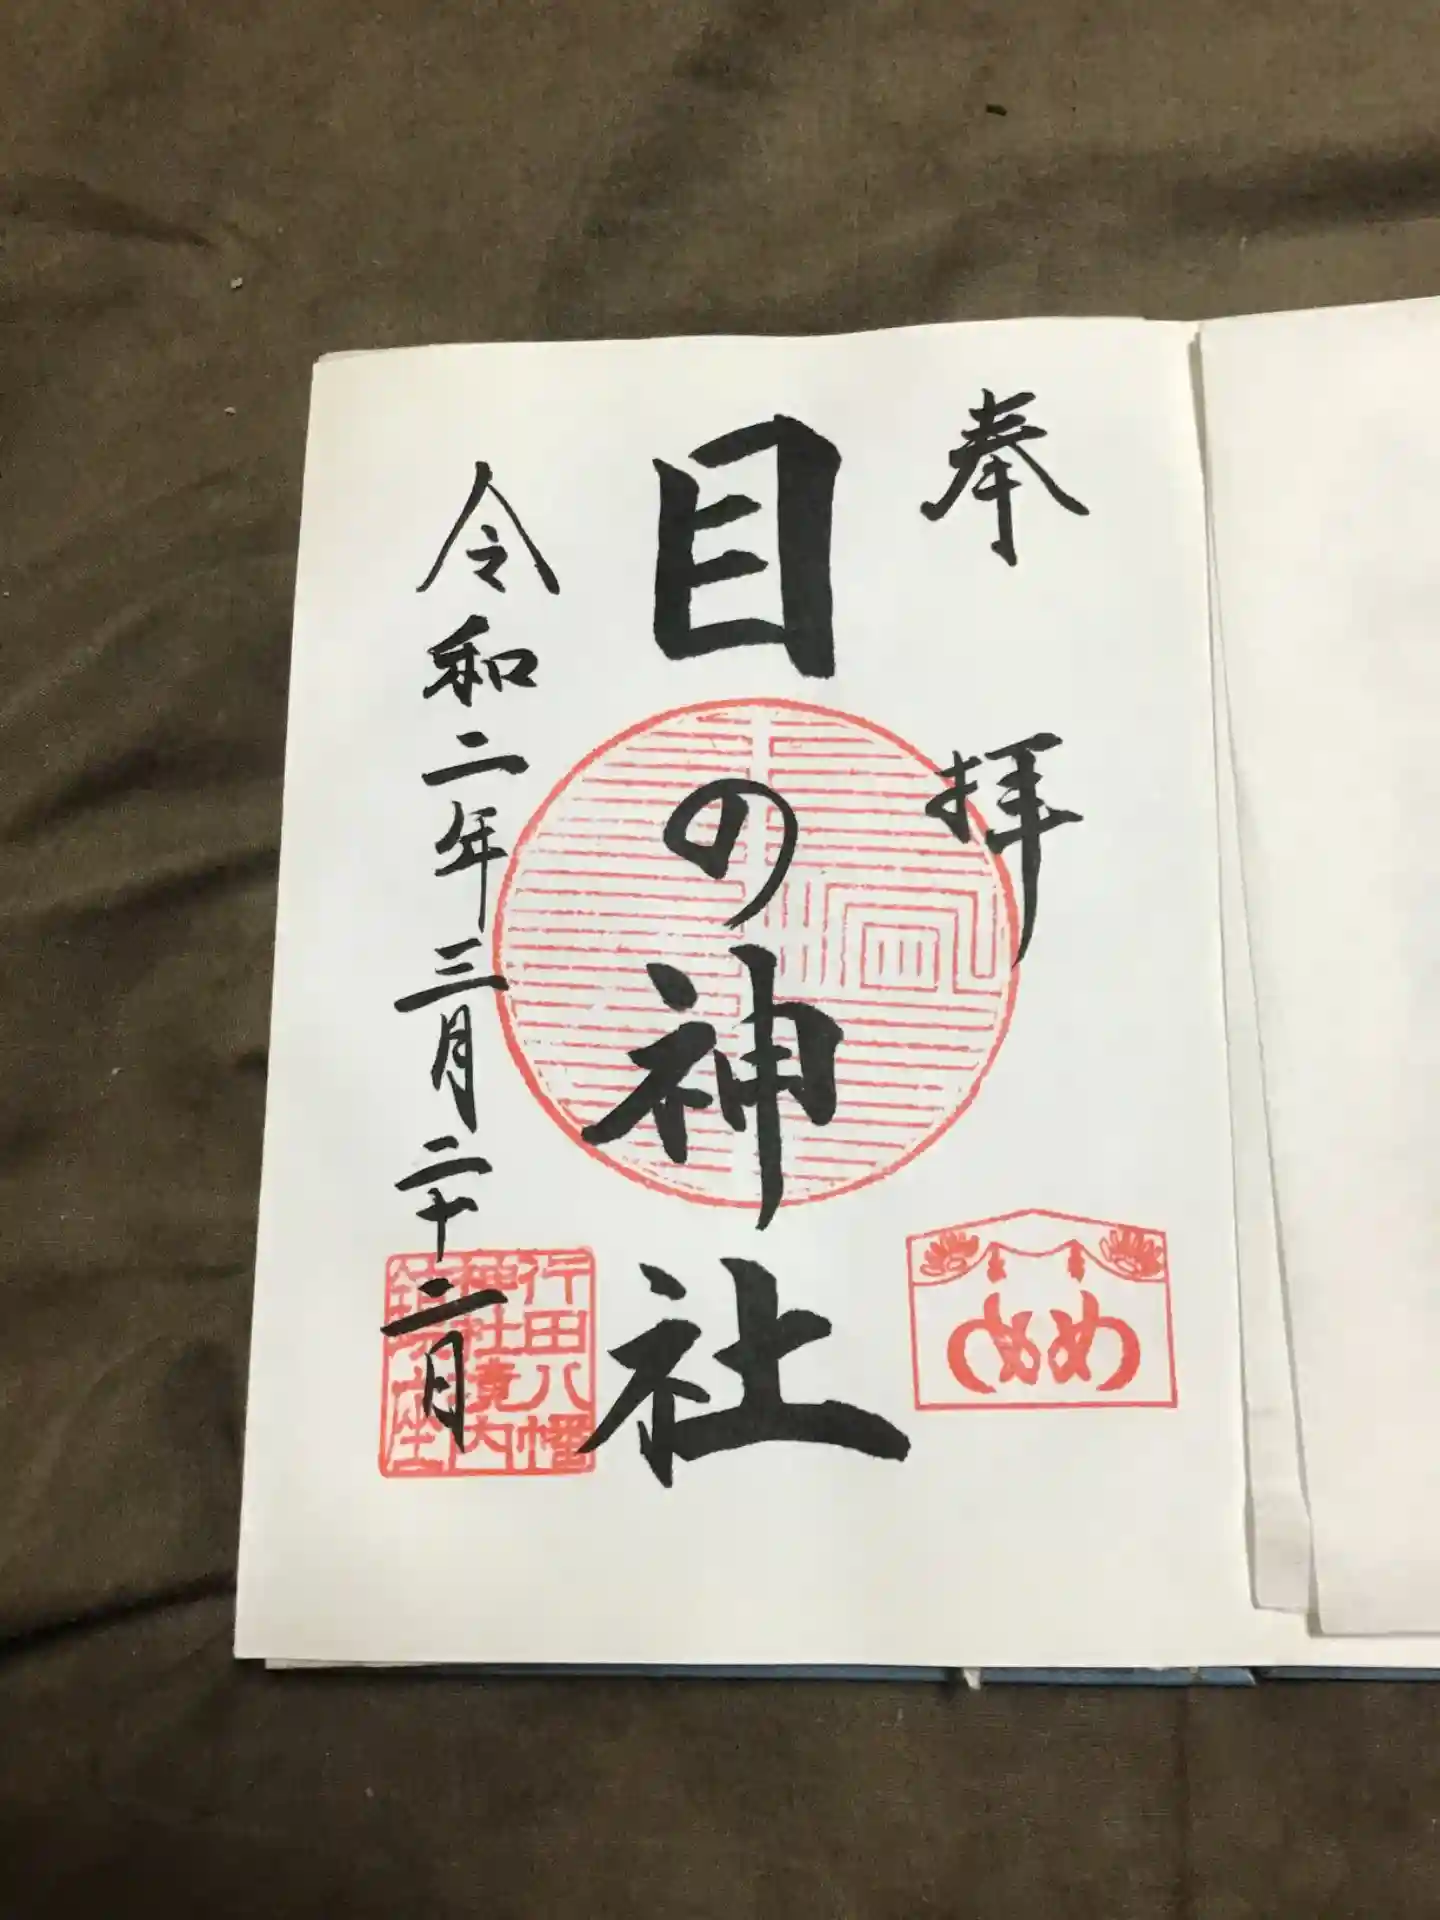 奉拝
目の神社
令和二年三月二十二日
行田八幡
神社境内
鎮座
め め